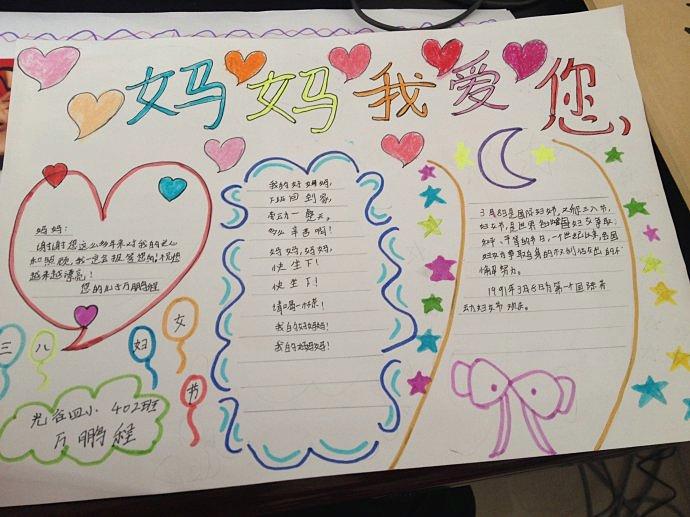 妈妈我爱您
妈妈:
谢谢您这么多年来对我的关心
和照顾,我一定会报答您的,祝您
越来越漂亮!
您的儿子万鹏程
三八妇女节
光谷四小 402班
万鹏程
我的好妈妈,
下班回到家,
劳动了一天,
多么辛苦呀!
妈妈,妈妈,
快坐下!
快坐下!
请喝一杯茶!
我的好妈妈!
我的好妈妈!
3月8日是国际妇女节,又称三八节,
妇女节,是世界各国妇女争取
和平、平等的节日,一个世纪以来,各国
妇女为争取自身的权利作出的不
懈努力。
1991年3月8日为第一个国际劳
动妇女节